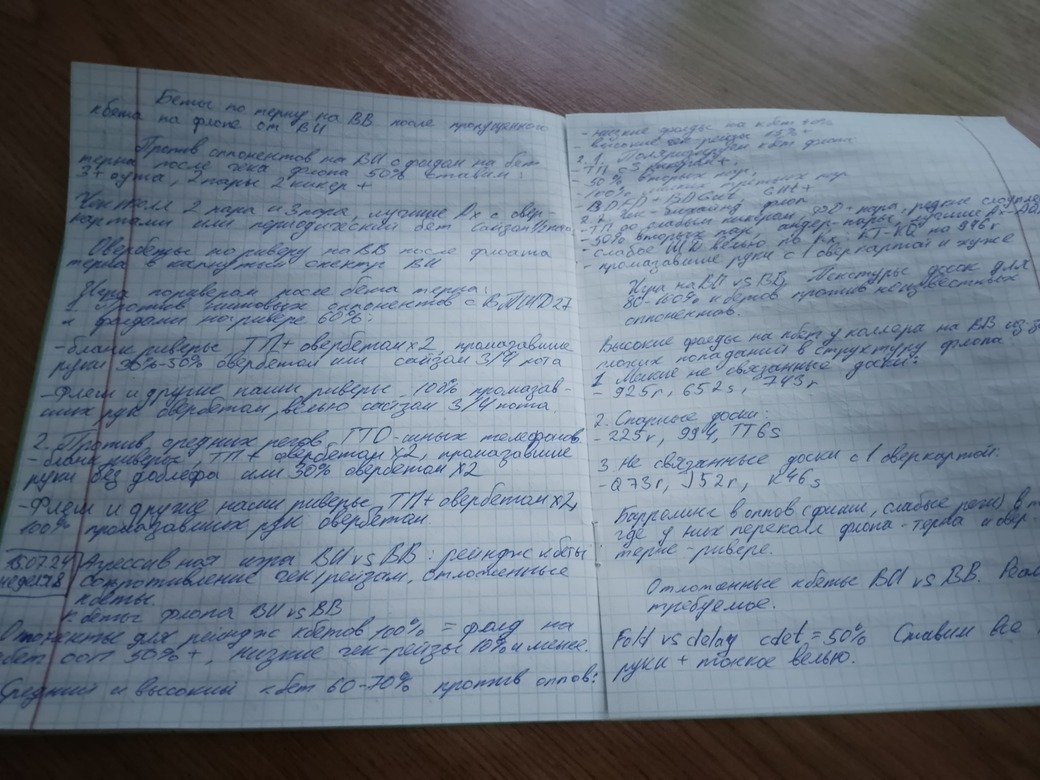 Беты по терну на ВВ после пропущенного
кбета на флопе от BU
Против оппонентов на BU с фолдом на бет
терна после чека флопа 50% ставим:
3+ аута, 2 пары 2 кикер +
2 пара и 3 пара, лучшие Ах с овер-
картами или периодический бет
Овербеты по риверу на ВВ после флоата
терна в капнутый спектр BU
Игра по риверам после бета терна:
1 против оппонентов с 27
и фолдами на ривере 60%:
-бланк риверы ТП+ овербетом х2, промазавшие
руки 30%-50% овербетом или сайзом 3/4 пота
-Флеш и другие наши риверы - 100% промазав-
ших рук овербетом, велью сайзом 3/4 пота.
2. Против средних регов, ГТО-шных телефонов
-бланк риверы - ТП+ овербетом х2, промазавшие
руки без доблефа или 30% овербетом х2
-Флеш и другие наши риверы, ТП+ овербетом х2,
100% промазавших рук овербетом
15.07.24
неделя 8
Агрессивная игра BU vs BB: рейндж кбеты
сопротивление чек/рейзам, отложенные
кбеты.
кбеты флопа BU vs BB
Оппоненты для рейндж кбетов 100% = фолд на
кбет ООП 50%+, низкие чек-рейзы 10% и менее.
Средний и высокий кбет 60-70% против оппов:
- низкие фолды на кбет 40%
- высокие чек рейзы 15%+
2.1. Поляризуем кбет флопа
ТП с 3 кикером+,
50% вторых пар,
100% третьих пар
BDFD + BDGut Gut+
2.2. Чек-бихайнд флоп
-ТП до слабым кикером, ФД+пара, редкие слоуплеи
-50% вторых пар, андер-пары, лучшие A-
слабое велью по KJ-KQ на 996r
- промазавшие руки с 1 оверкартой и хуже
Игра на BU vs BB. Текстуры досок для
80-100% кбетов против неизвестных
оппонентов.
Высокие фолды на кбет у коллера на ВВ из-за
плохих попаданий в структуру флопа
1. Мелкие не связанные доски:
- 925r, 652s, 743r
2. Спаренные доски:
- 225r, 994, TT6s
3. Не связанные доски с 1 оверкартой:
- Q73r, J52r, K46s
Баррелинг в оппов (фиши, слабые реги) в
где у них переколл флопа-терна и овер
терне-ривере.
Отложенные кбеты BU vs BB.
требуемое.
Fold vs delay cbet = 50% Ставим все
руки + тонкое велью.